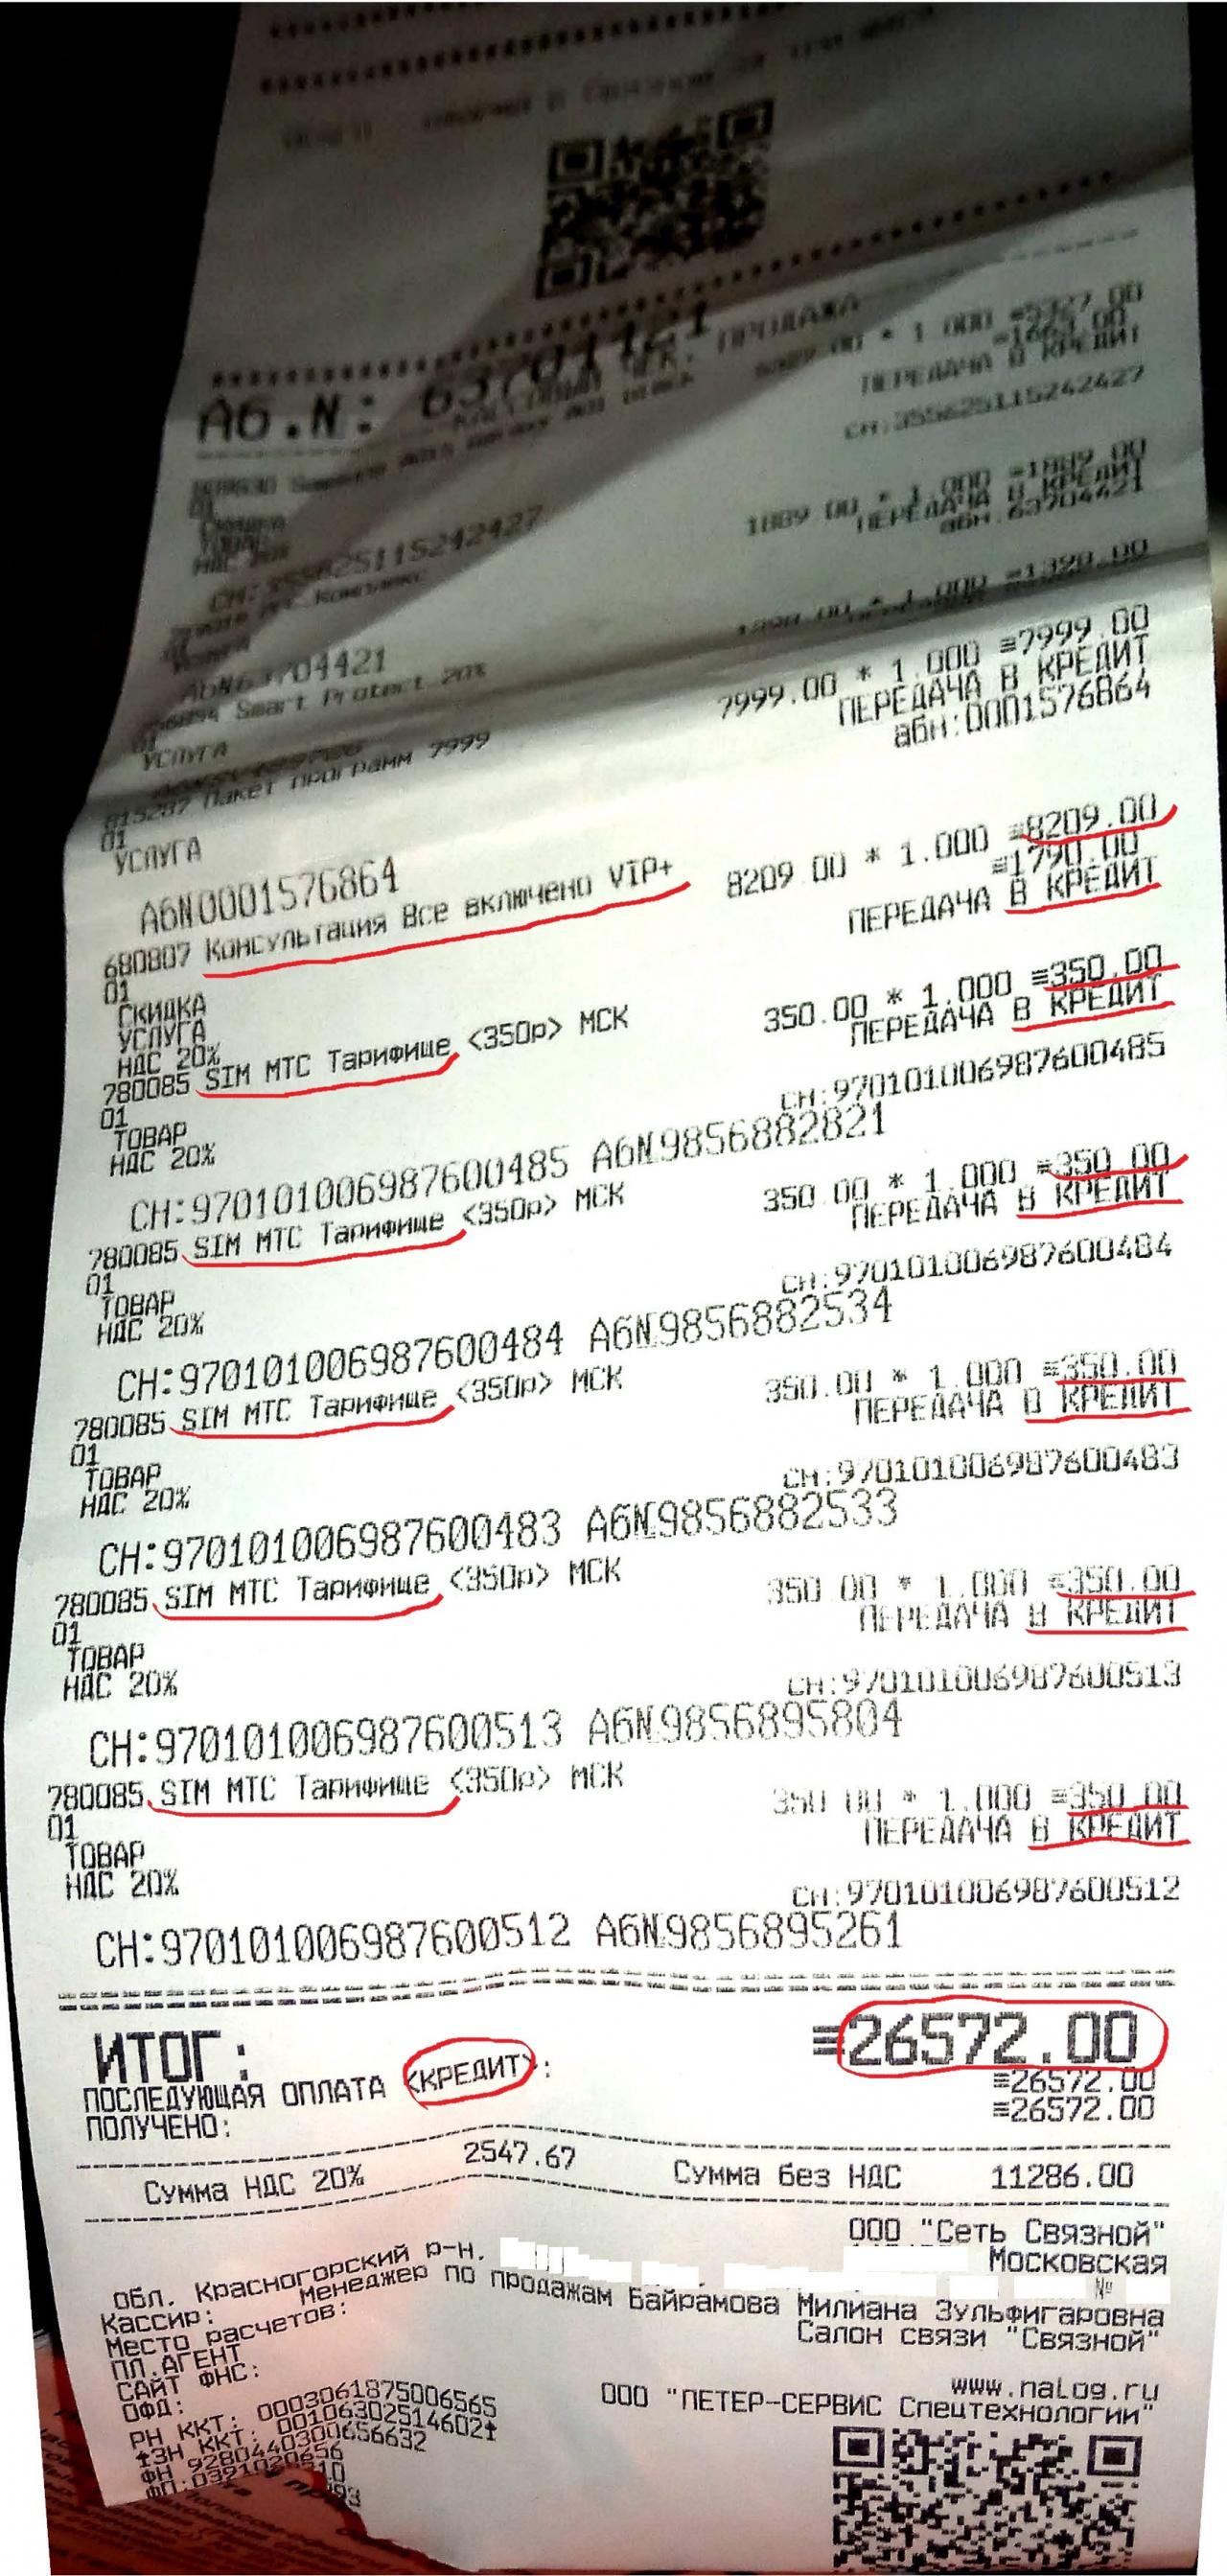 Аб.N:
КАССОВЫЙ ЧЕК. ПРОДАЖА
* 1.000 ≡5327.00
ПЕРЕДАЧА В КРЕДИТ
СН:355625115242427
01
СКИДКА
ТОВАР
НДС 20%
СН:355625115242427
1889.00 * 1.000 ≡1889.00
ПЕРЕДАЧА В КРЕДИТ
абн.63704421
АбN63704421
Smart Protect 20%
1398.00 * 1.000 ≡1398.00
01
УСЛУГА
815287 Пакет программ 7999
7999.00 * 1.000 ≡7999.00
ПЕРЕДАЧА В КРЕДИТ
абн:0001576864
01
УСЛУГА
АбN0001576864
680807 Консультация Все включено VIP+
8209.00 * 1.000 ≡8209.00
≡1790.00
ПЕРЕДАЧА В КРЕДИТ
01
СКИДКА
УСЛУГА
НДС 20%
780085 SIM МТС Тарифище <350р> МСК
350.00 * 1.000 ≡350.00
ПЕРЕДАЧА В КРЕДИТ
СН:970101006987600485
01
ТОВАР
НДС 20%
СН:970101006987600485 АбN9856882821
780085 SIM МТС Тарифище <350р> МСК
350.00 * 1.000 ≡350.00
ПЕРЕДАЧА В КРЕДИТ
СН:970101006987600484
01
ТОВАР
НДС 20%
СН:970101006987600484 АбN9856882534
780085 SIM МТС Тарифище <350р> МСК
350.00 * 1.000 ≡350.00
ПЕРЕДАЧА В КРЕДИТ
СН:970101006987600483
01
ТОВАР
НДС 20%
СН:970101006987600483 АбN9856882533
780085 SIM МТС Тарифище <350р> МСК
350.00 * 1.000 ≡350.00
ПЕРЕДАЧА В КРЕДИТ
СН:970101006987600513
01
ТОВАР
НДС 20%
СН:970101006987600513 АбN9856895804
780085 SIM МТС Тарифище <350р> МСК
350.00 * 1.000 ≡350.00
ПЕРЕДАЧА В КРЕДИТ
СН:970101006987600512
01
ТОВАР
НДС 20%
СН:970101006987600512 АбN9856895261
ИТОГ: ≡26572.00
ПОСЛЕДУЮЩАЯ ОПЛАТА <КРЕДИТ>: ≡26572.00
ПОЛУЧЕНО: ≡26572.00
Сумма НДС 20% 2547.67 Сумма без НДС 11286.00
ООО "Сеть Связной"
Московская
обл. Красногорский р-н. №
Кассир: Менеджер по продажам Байрамова Милиана Зульфигаровна
Место расчетов: Салон связи "Связной"
ПЛ.АГЕНТ
САЙТ ФНС: www.nalog.ru
ОФД: ООО "ПЕТЕР-СЕРВИС Спецтехнологии"
РН ККТ: 0003061875006565
ЗН ККТ: 00106302514602
ФН 9280440300656632